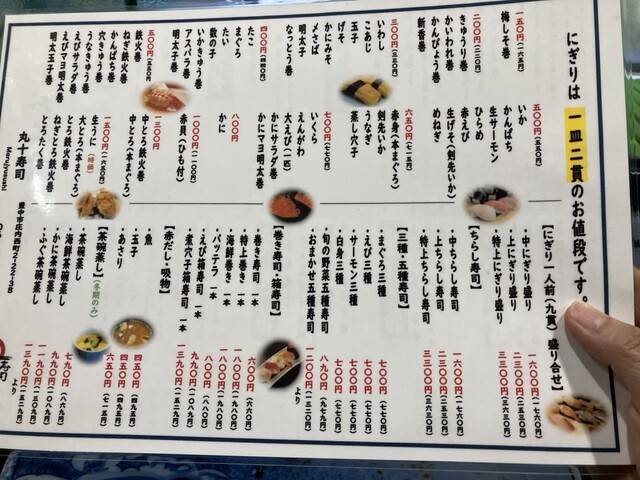 にぎりは 一皿二貫のお値段です。
梅しそ巻
二〇〇円(二二〇円)
きゅうり巻
かいわれ巻
かんぴょう巻
新香巻
三〇〇円(三三〇円)
いわし
こあじ
玉子
げそ
かにみそ
〆さば
明太子
なっとう巻
四〇〇円(四四〇円)
たこ
まぐろ
たい
数の子
いかきゅう巻
アスパラ巻
明太子巻
五〇〇円(五五〇円)
鉄火巻
ねぎ鉄火巻
かんぱち巻
穴きゅう巻
うなきゅう巻
えびサラダ巻
えびマヨ明太巻
明太玉子巻
五〇〇円(五五〇円)
いか
かんぱち
生サーモン
ひらめ
赤えび
生げそ(剣先いか)
めねぎ
六五〇円(七一五円)
赤身(本まぐろ)
剣先いか
うなぎ
蒸し穴子
いくら
えんがわ
大えび(一匹)
かにサラダ巻
かにマヨ明太巻
八〇〇円
かに
一〇〇〇円(一一〇〇円)
赤貝(ひも付)
一三〇〇円
中とろ鉄火巻
中とろ(本まぐろ)
一五〇〇円(一六五〇円)
大とろ(本まぐろ)
生うに(時価)
とろ鉄火巻
ねぎとろ巻
とろたく巻
【にぎり一人前(九貫)盛り合せ】
・中にぎり盛り 一六〇〇円(一七六〇円)
・上にぎり盛り 二三〇〇円(二五三〇円)
・特上にぎり盛り 三三〇〇円(三六三〇円)
【ちらし寿司】
・中ちらし寿司 一六〇〇円(一七六〇円)
・上ちらし寿司 二三〇〇円(二五三〇円)
・特上ちらし寿司 三三〇〇円(三六三〇円)
【三種・五種寿司】
・まぐろ三種 七〇〇円(七七〇円)
・えび三種 七〇〇円(七七〇円)
・サーモン三種 七〇〇円(七七〇円)
・白身三種 七〇〇円(七七〇円)
・旬の野菜五種寿司 八九〇円(九七九円)
・おまかせ五種寿司 一二〇〇円(一三二〇円)より
【巻き寿司・箱寿司】
・巻き寿司 一本 六〇〇円(六六〇円)
・特上巻き 一本 一八〇〇円(一九八〇円)
・海鮮巻き 一本
・バッテラ 一本 八〇〇円(八八〇円)
・えび箱寿司 一本
・煮穴子箱寿司 一本 一三九〇円(一五二九円)
【赤だし・吸物】
・魚 四五〇円(四九五円)
・玉子 四五〇円(四九五円)
・あさり 六五〇円(七一五円)
【茶碗蒸し】(冬期のみ)
・茶碗蒸し 七九〇円(八六九円)
・海鮮茶碗蒸し
・かに茶碗蒸し
・ふぐ茶碗蒸し 一三九〇円(一五二九円)より
丸十寿司
Marujyusushi
豊中市庄内西町2-22-38